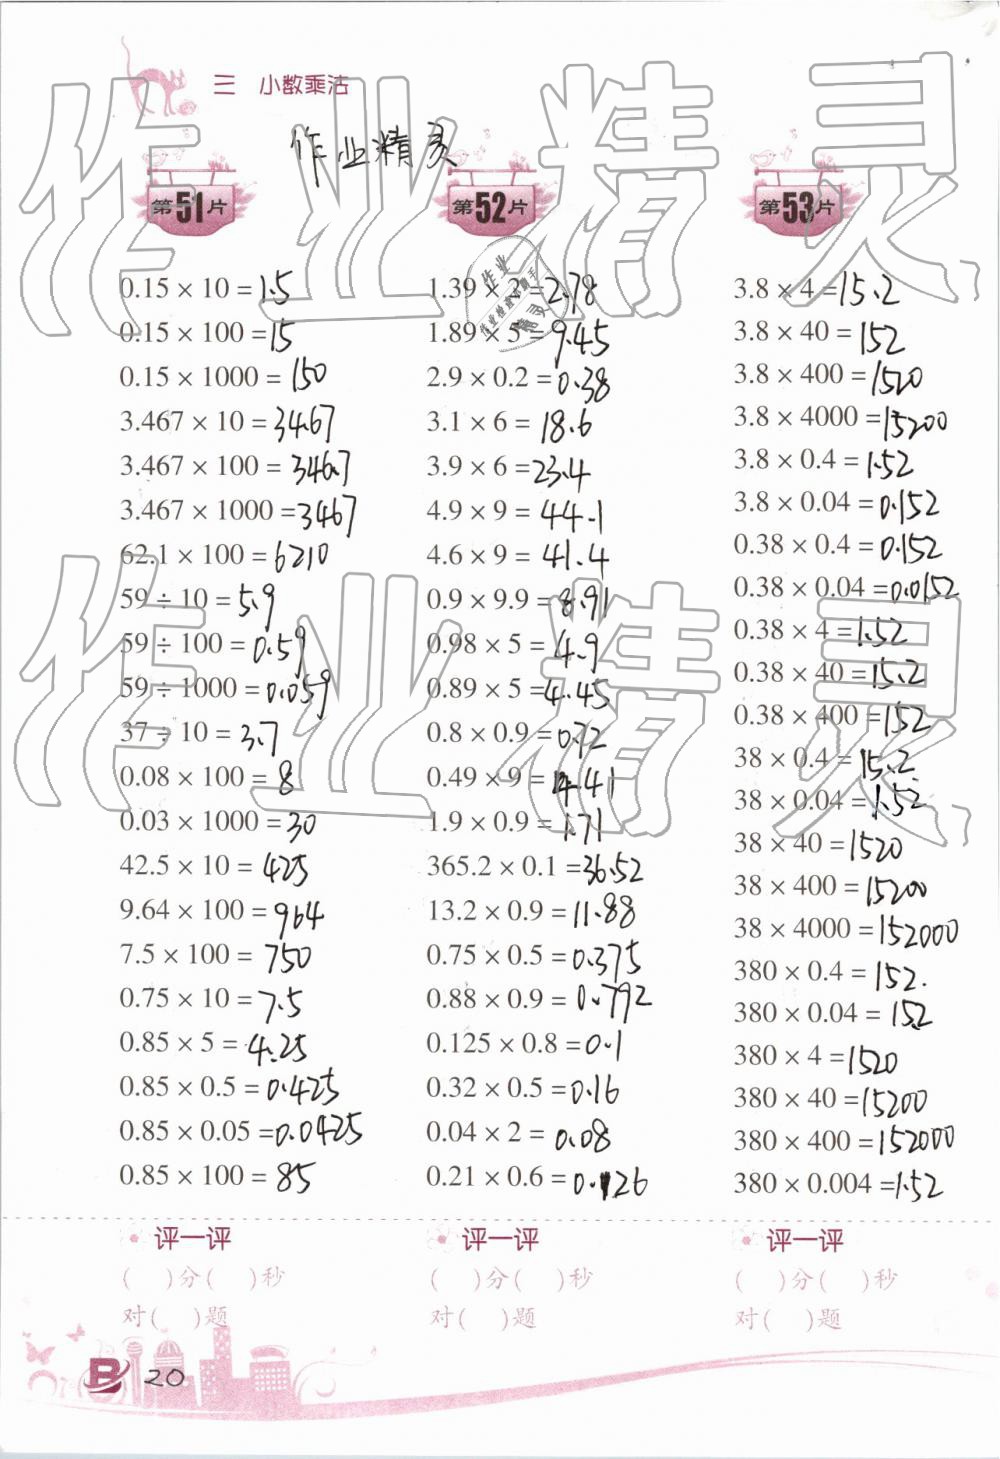 三 小数乘法
作业精灵
第51片
0.15 × 10 = 1.5
0.15 × 100 = 15
0.15 × 1000 = 150
3.467 × 10 = 34.67
3.467 × 100 = 346.7
3.467 × 1000 = 3467
62.1 × 100 = 6210
59 ÷ 10 = 5.9
59 ÷ 100 = 0.59
59 ÷ 1000 = 0.059
37 ÷ 10 = 3.7
0.08 × 100 = 8
0.03 × 1000 = 30
42.5 × 10 = 425
9.64 × 100 = 964
7.5 × 100 = 750
0.75 × 10 = 7.5
0.85 × 5 = 4.25
0.85 × 0.5 = 0.425
0.85 × 0.05 = 0.0425
0.85 × 100 = 85
评一评
( )分( )秒
对( )题
第52片
1.39 × 2 = 2.78
1.89 × 5 = 9.45
2.9 × 0.2 = 0.38
3.1 × 6 = 18.6
3.9 × 6 = 23.4
4.9 × 9 = 44.1
4.6 × 9 = 41.4
0.9 × 9.9 = 8.91
0.98 × 5 = 4.9
0.89 × 5 = 4.45
0.8 × 0.9 = 0.72
0.49 × 9 = 4.41
1.9 × 0.9 = 1.71
365.2 × 0.1 = 36.52
13.2 × 0.9 = 11.88
0.75 × 0.5 = 0.375
0.88 × 0.9 = 0.792
0.125 × 0.8 = 0.1
0.32 × 0.5 = 0.16
0.04 × 2 = 0.08
0.21 × 0.6 = 0.126
评一评
( )分( )秒
对( )题
第53片
3.8 × 4 = 15.2
3.8 × 40 = 152
3.8 × 400 = 1520
3.8 × 4000 = 15200
3.8 × 0.4 = 1.52
3.8 × 0.04 = 0.152
0.38 × 0.4 = 0.152
0.38 × 0.04 = 0.0152
0.38 × 4 = 1.52
0.38 × 40 = 15.2
0.38 × 400 = 152
38 × 0.4 = 15.2
38 × 0.04 = 1.52
38 × 40 = 1520
38 × 400 = 15200
38 × 4000 = 152000
380 × 0.4 = 152.
380 × 0.04 = 152
380 × 4 = 1520
380 × 40 = 15200
380 × 400 = 152000
380 × 0.004 = 1.52
评一评
( )分( )秒
对( )题
20
作业精灵
作业精灵